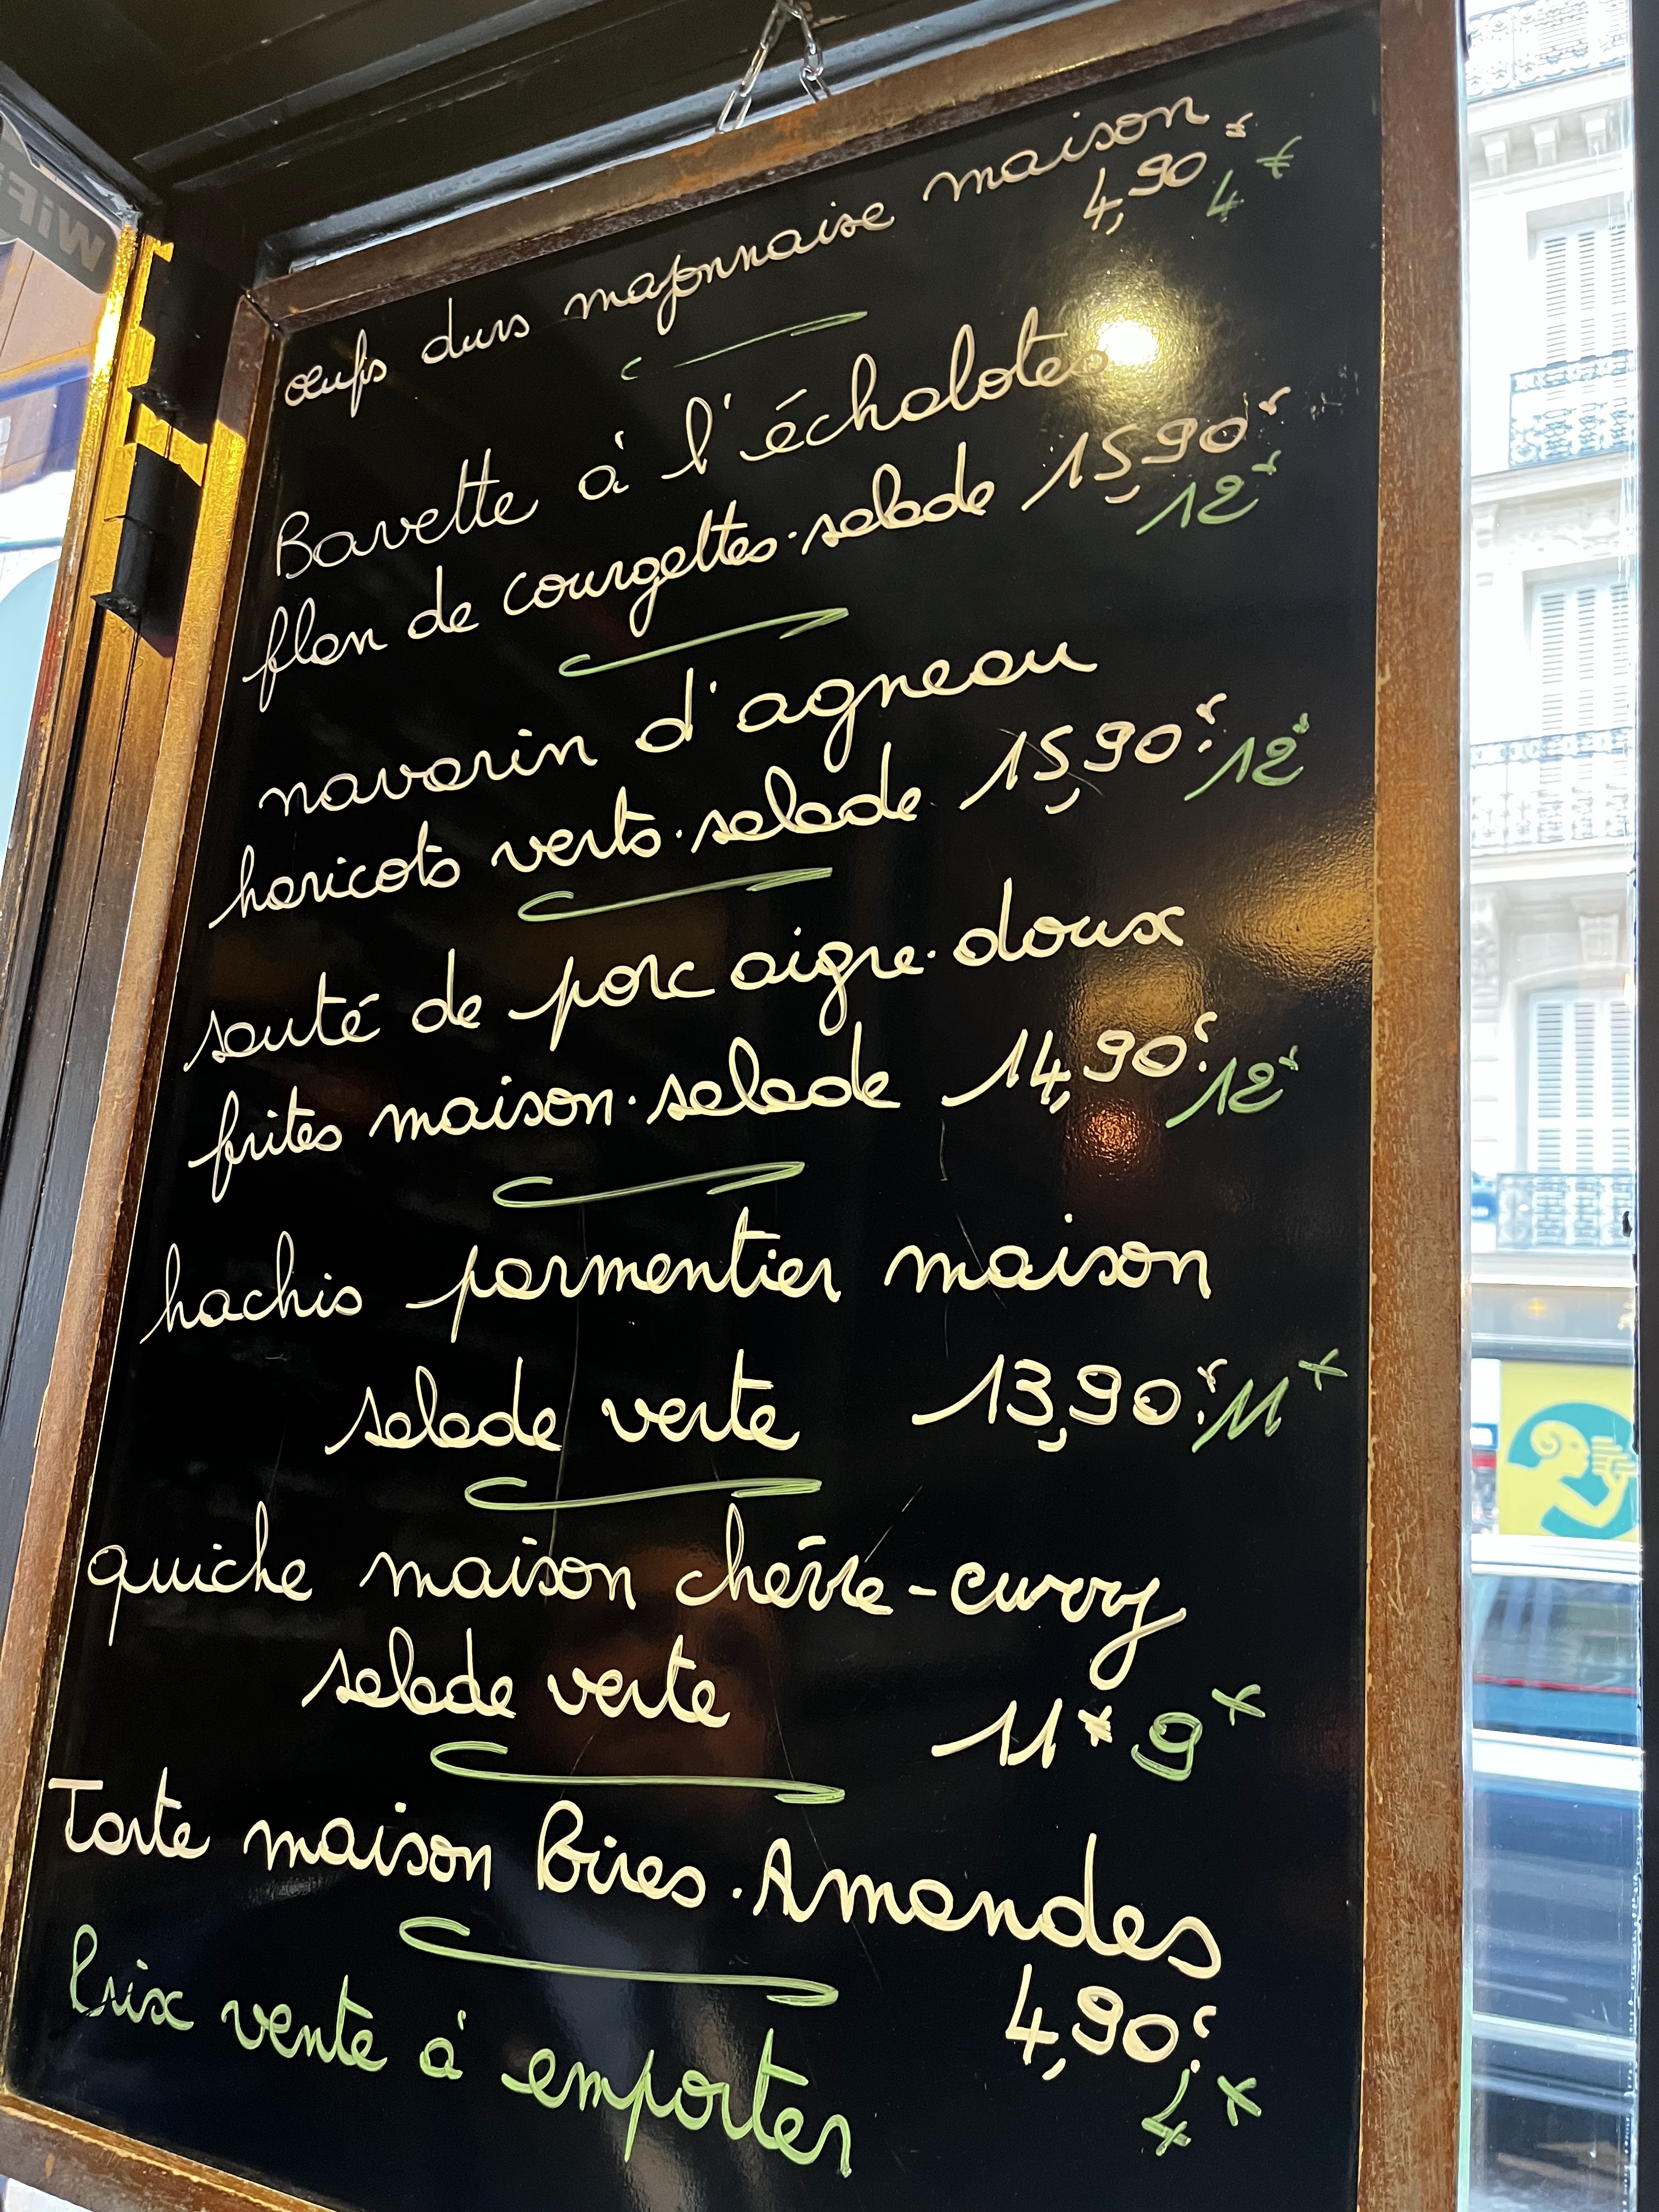 WiFi
œufs durs mayonnaise maison
4,90€ 4€
Bavette à l'échalotes
flan de courgettes.salade 15,90€
12€
navarin d'agneau
haricots verts.salade 15,90€ 12€
sauté de porc aigre.doux
frites maison.salade 14,90€ 12€
hachis parmentier maison
salade verte 13,90€ 11€
quiche maison chèvre-curry
salade verte 11€ 9€
Tarte maison Poires.Amandes
4,90€
Prix vente à emporter 4€